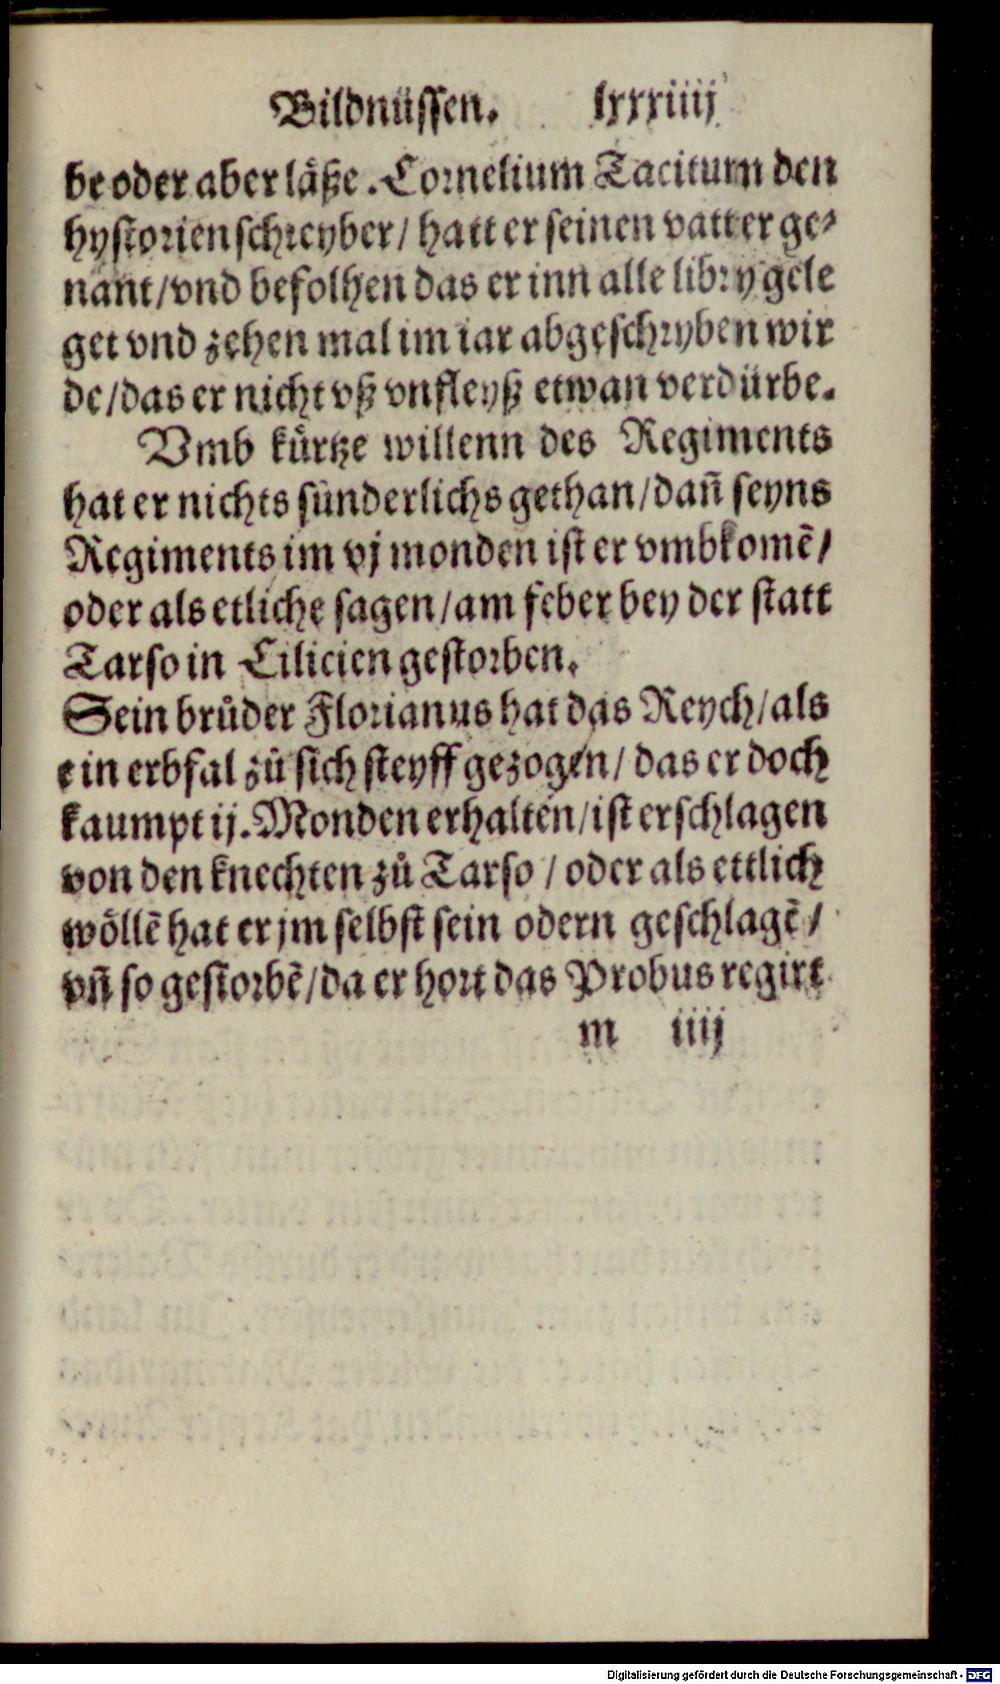 Bildnüssen. lxxxiiij
be oder aber läße. Cornelium Tacitum den
hystorienschreyber/ hatt er seinen vatter ge⸗
nant/vnd befolhen das er inn alle libry gele
get vnd zehen mal im iar abgeschryben wir
de/das er nicht vß vnfleyß etwan verdürbe.
Vmb kürtze willenn des Regiments
hat er nichts sunderlichs gethan/dañ seyns
Regiments im vj monden ist er vmbkomē/
oder als etliche sagen/am feber bey der statt
Tarso in Cilicien gestorben.
Sein brůder Florianus hat das Reych/als
ein erbfal zů sich steyff gezogen/ das er doch
kaumpt ij. Monden erhalten/ist erschlagen
von den knechten zů Tarso / oder als ettlich
wöllē hat er jm selbst sein odern geschlagē/
vñ so gestorbē/da er hort das Probus regirt
m iiij
Digitalisierung gefördert durch die Deutsche Forschungsgemeinschaft - DFG